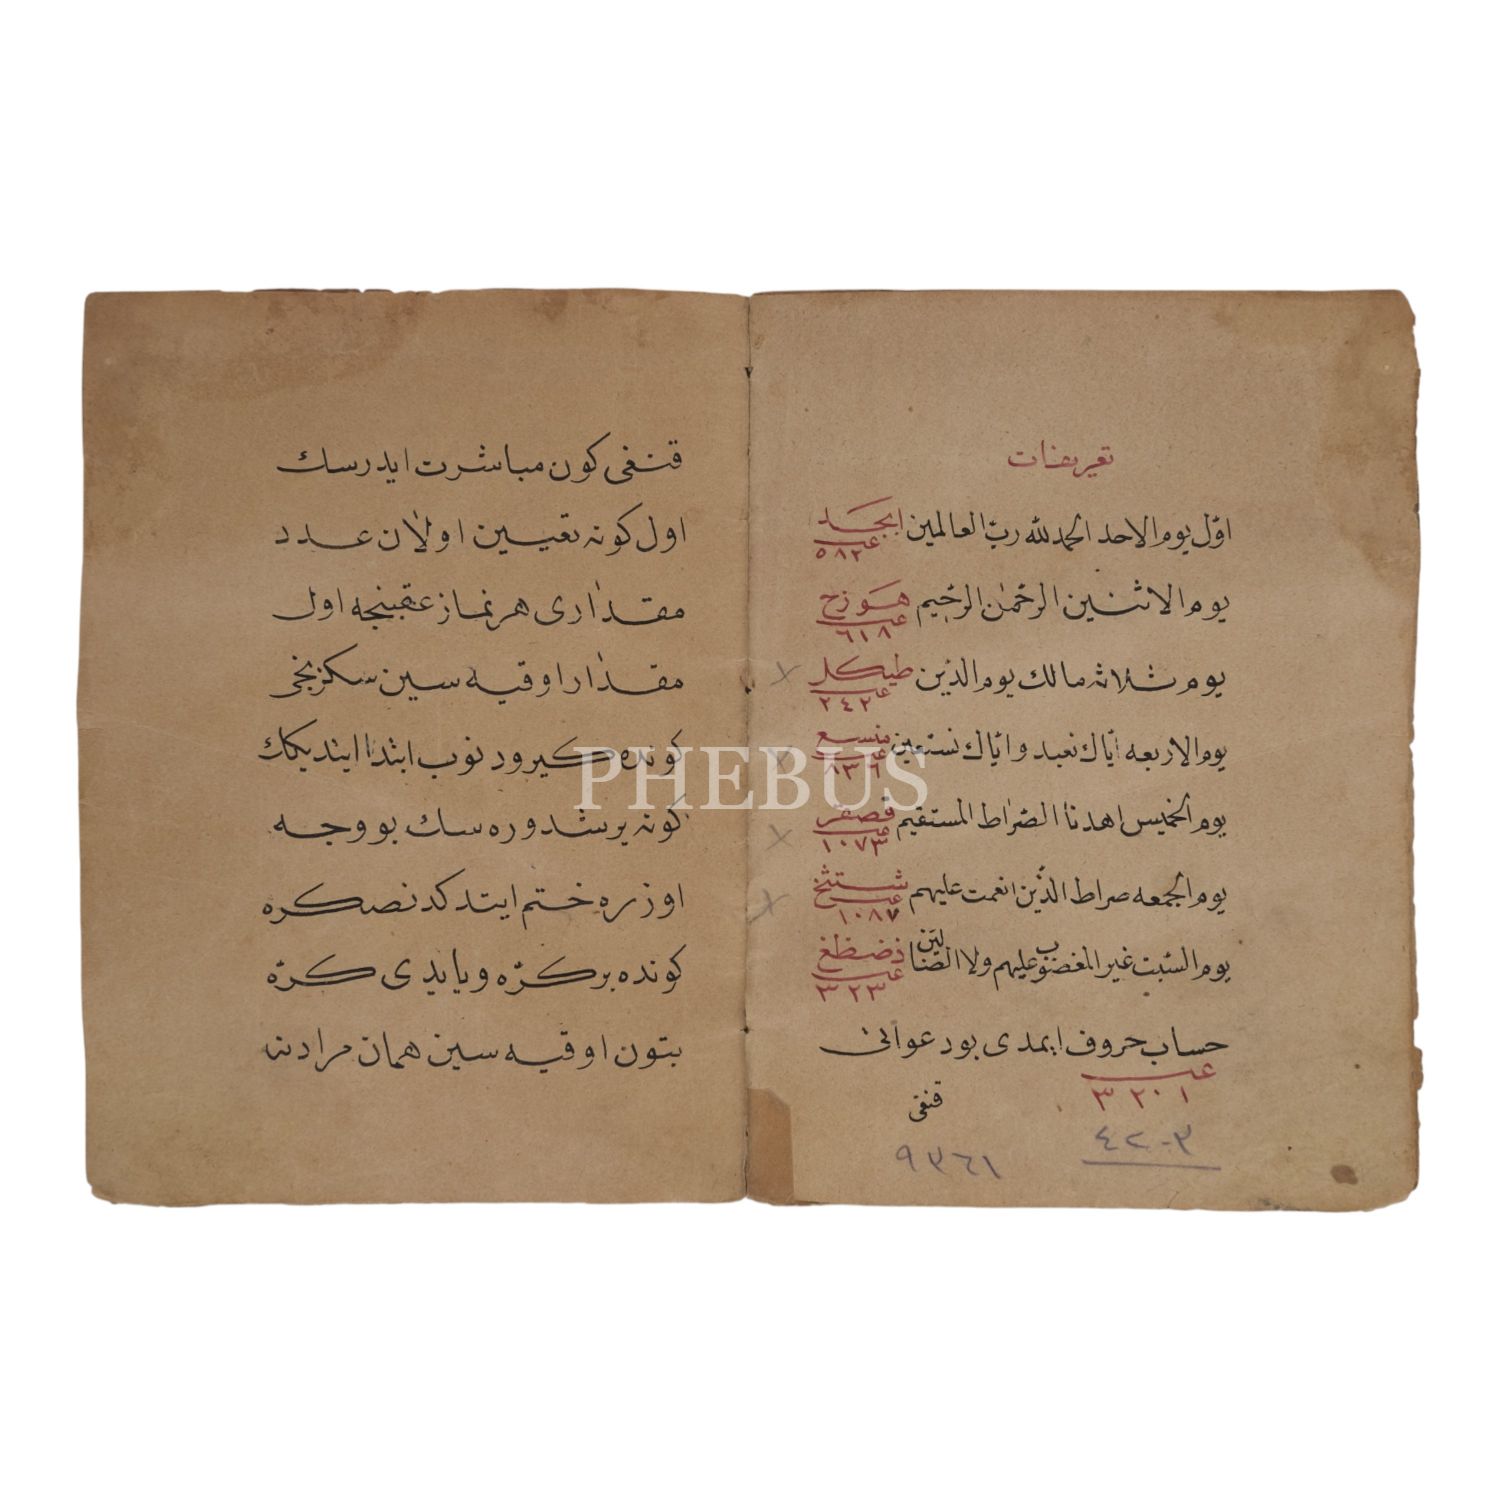 تعريفات
اوّل يوم الاحد الحمد لله ربّ العالمين ابجد
عدد ٥٨٢
يوم الاثنين الرحمٰن الرحيم هوزح
عدد ٦١٨
يوم ثلاثه مالك يوم الدّين طيكل
عدد ٢٤٢
يوم الاربعه ايّاك نعبد و ايّاك نستعين منسع
عدد ٨٣٦
يوم الخميس اهدنا الصّراط المستقيم فصقر
عدد ١٠٧٣
يوم الجمعه صراط الذّين انعمت عليهم شتثخ
عدد ١٠٨٧
يوم السّبت غير المغضوب عليهم ولا الضّالّين ذضظغ
عدد ٣٢٣
حساب حروف ايمدى بو دعوانى
عدد
قنغى
٩٣٦١
قنغى كون مباشرت ايدرسك
اول كونه تعيين اولان عدد
مقدارى هر نماز عقبنجه اول
مقدار اوقيه سين سكزنجى
كونده كيرو دنوب ابتدا ايتديكك
كونه يرشدوره سك بو وجه
اوزره ختم ايتدكدنصكره
كونده بر كرّه و يا يدى كرّه
بتون اوقيه سين همان مرادنه
PHEBUS